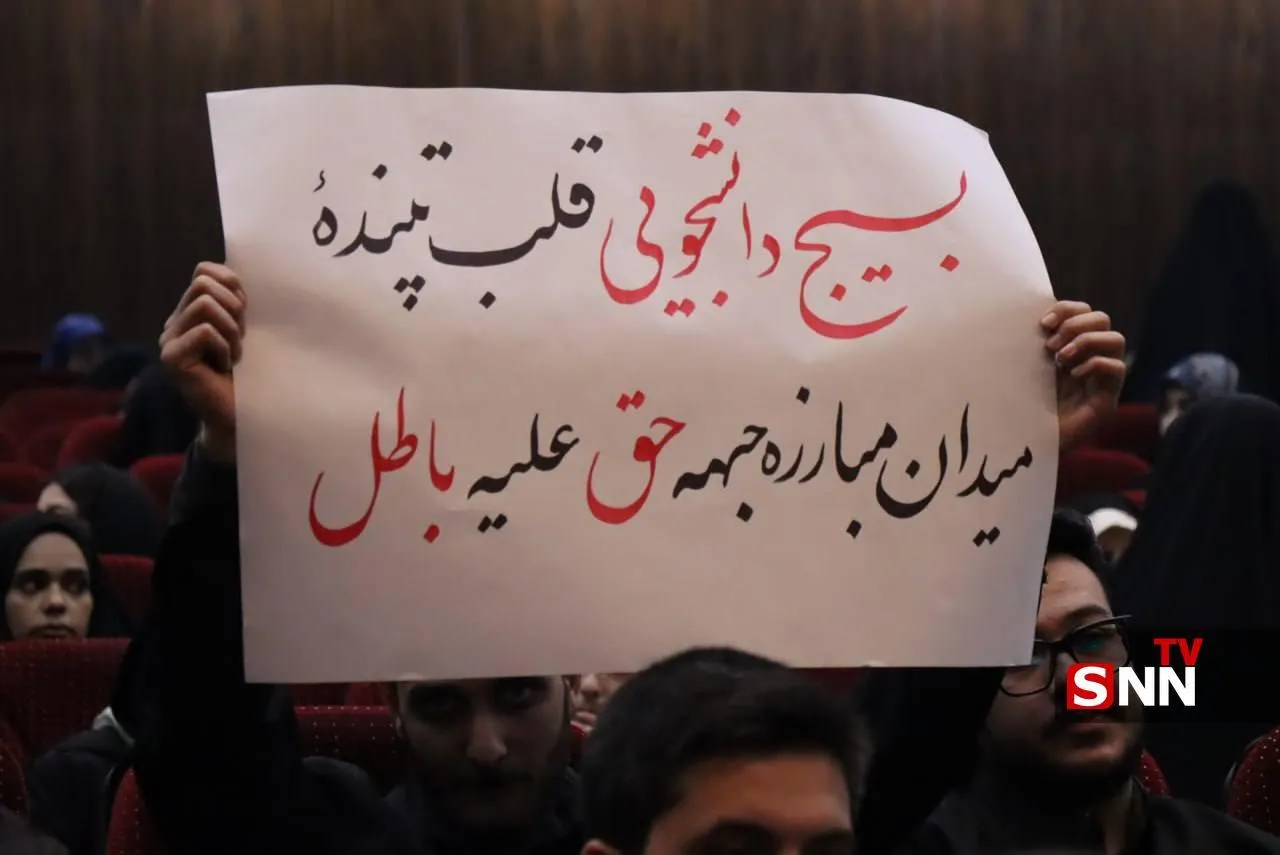 بسیج دانشجویی قلب تپندهٔ
میدان مبارزه جبهه حق علیه باطل
SNN TV